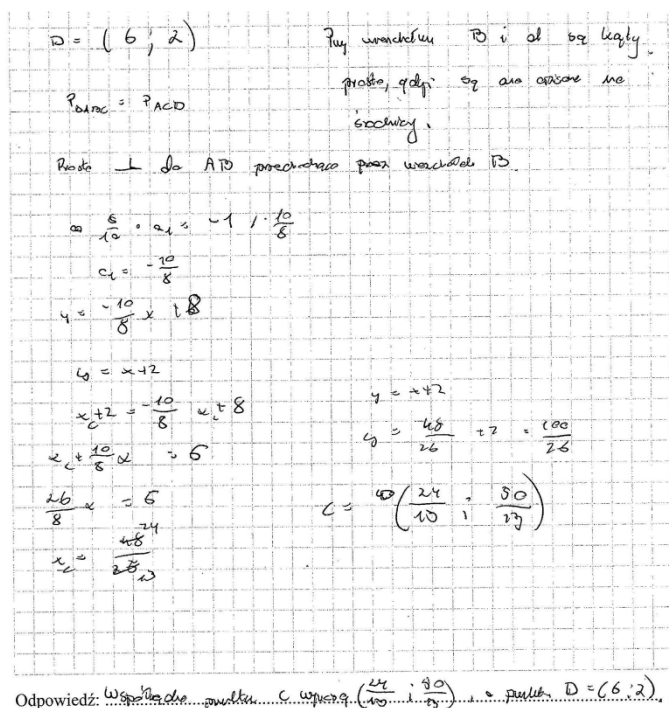 D = ( 6 ; 2 )
Przy wierzchołku B i d są kąty
proste, gdyż są one opisane na
średnicy.
P = P_ACD
Prosta ⊥ do AB przechodząca przez wierzchołek B
8/10 · a_1 = -1 / · 10/8
a_1 = -10/8
y = -10/8 x + 8
y = x+2
x_c+2 = -10/8 x_c + 8
x_c + 10/8 x = 6
26/8 x = 6
x_c = 48 24 / 26 13
y = x+2
y = 48/26 + 2 = 100/26
C = ( 24/13 ; 50/13 )
Odpowiedź: Współrzędne punktu C wynoszą ( 24/13 ; 50/13 ), a punktu D = (6 ; 2).